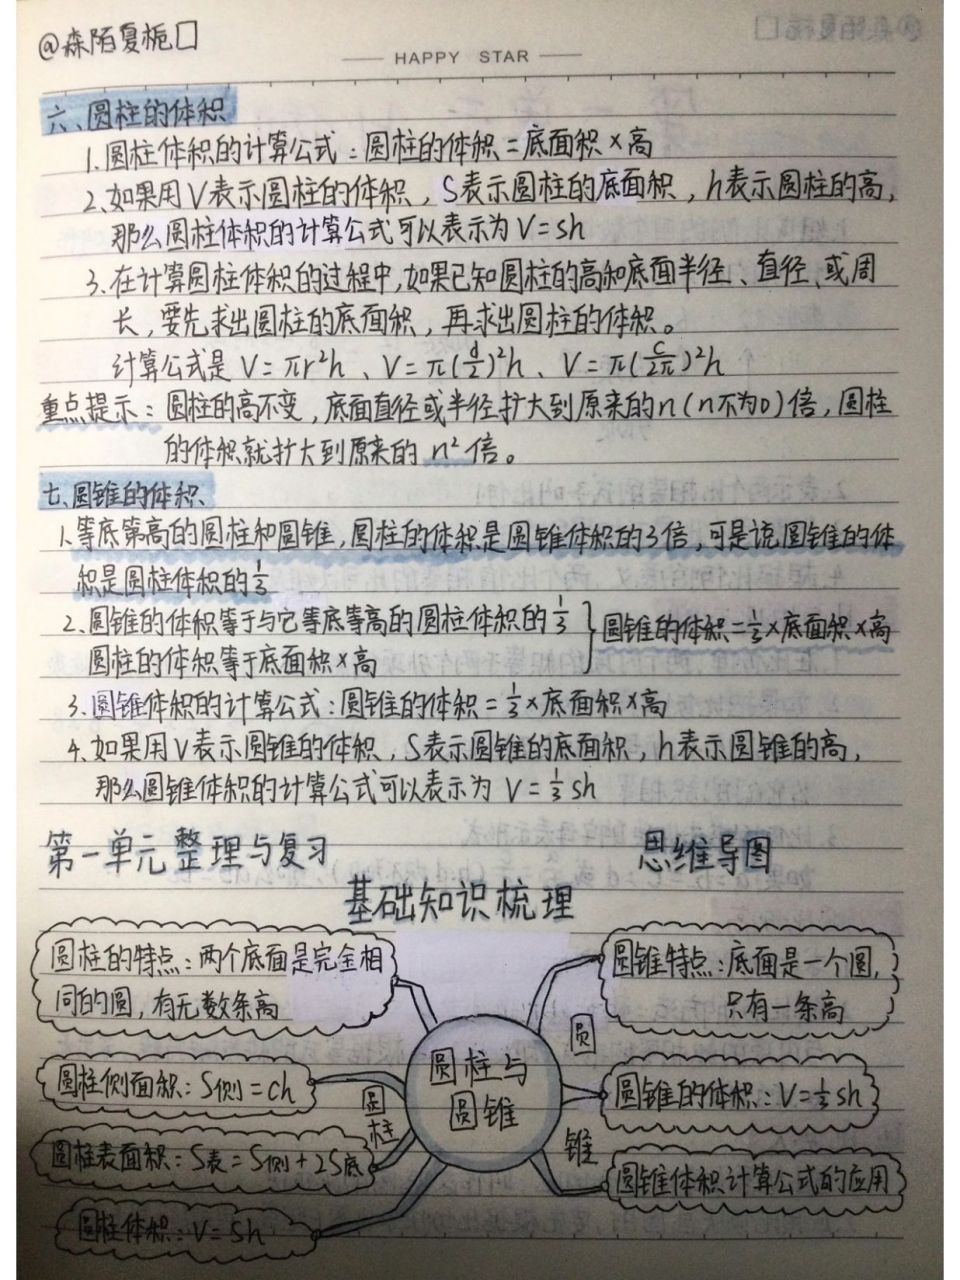 @森陌夏栀口
HAPPY STAR
六、圆柱的体积
1.圆柱体积的计算公式：圆柱的体积=底面积×高
2.如果用V表示圆柱的体积，S表示圆柱的底面积，h表示圆柱的高，
那么圆柱体积的计算公式可以表示为V=sh
3.在计算圆柱体积的过程中，如果已知圆柱的高和底面半径、直径、或周
长，要先求出圆柱的底面积，再求出圆柱的体积。
计算公式是V=πr²h、V=π(d/2)²h、V=π(C/2π)²h
重点提示：圆柱的高不变，底面直径或半径扩大到原来的n(n不为0)倍，圆柱
的体积就扩大到原来的n²倍。
七.圆锥的体积
1.等底等高的圆柱和圆锥，圆柱的体积是圆锥体积的3倍，可是说圆锥的体
积是圆柱体积的1/3
2.圆锥的体积等于与它等底等高的圆柱体积的1/3
圆柱的体积等于底面积×高
}圆锥的体积=1/3×底面积×高
3.圆锥体积的计算公式：圆锥的体积=1/3×底面积×高
4.如果用V表示圆锥的体积，S表示圆锥的底面积，h表示圆锥的高，
那么圆锥体积的计算公式可以表示为V=1/3sh
第一单元整理与复习 思维导图
基础知识梳理
圆柱的特点：两个底面是完全相
同的圆，有无数条高
圆柱侧面积：S侧=ch
圆柱表面积：S表=S侧+2S底
圆柱体积：V=Sh
圆柱
圆柱与
圆锥
圆锥
圆锥特点：底面是一个圆，
只有一条高
圆锥的体积：V=1/3sh
圆锥体积计算公式的应用